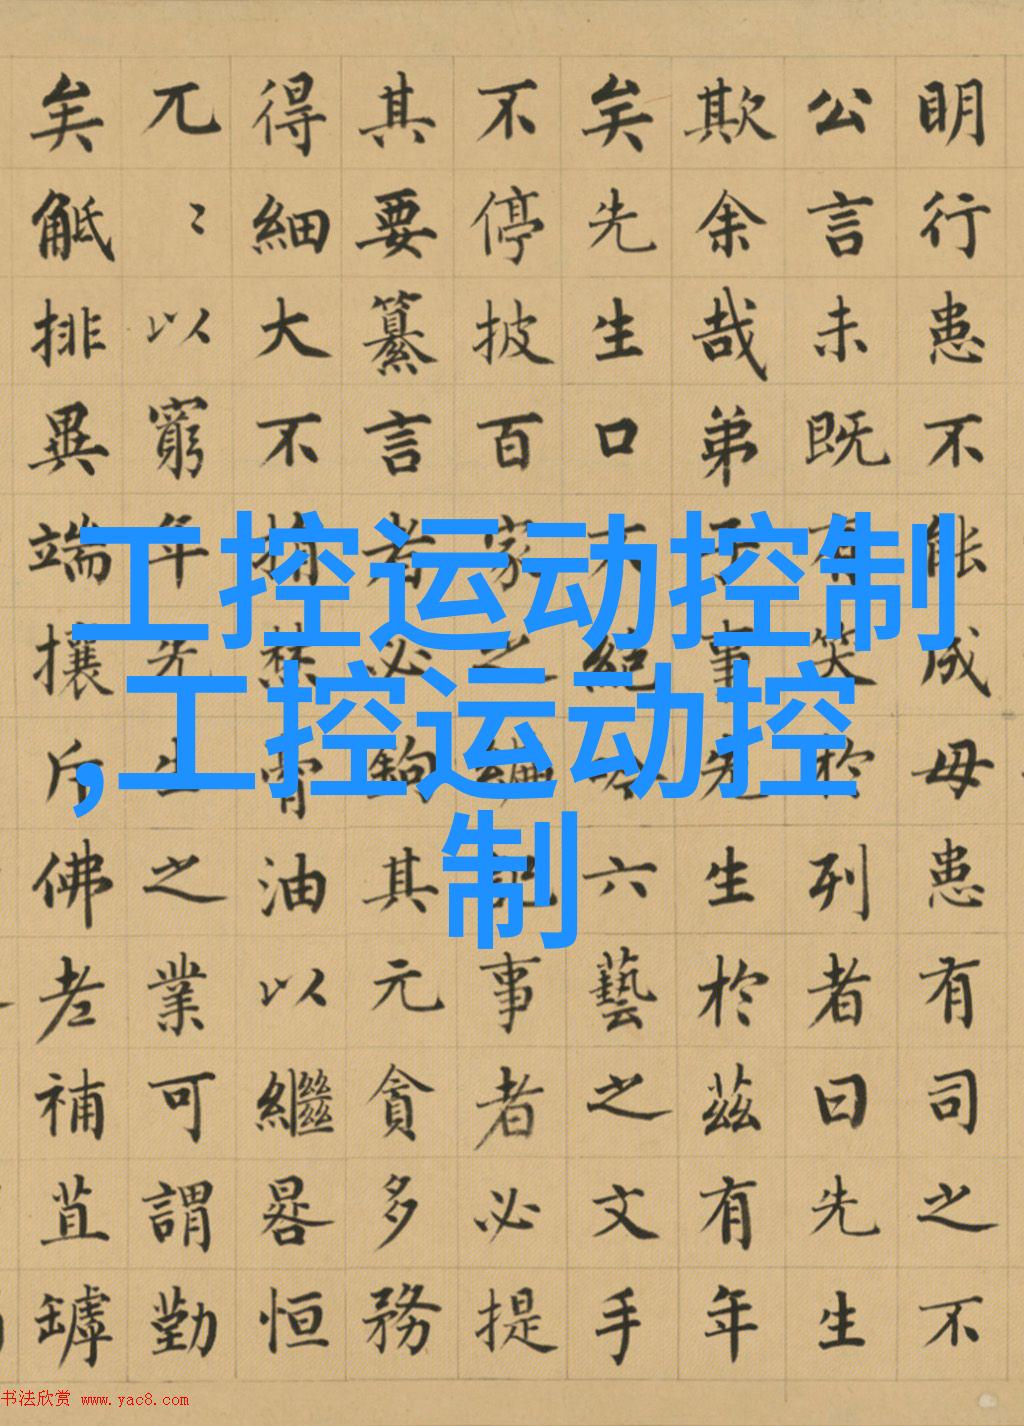 明行患不能成毋患有司之不
公言未既有笑於列者曰先生
欺余哉弟子事先生於茲有年
矣先生口不絕吟六藝之文手
不停披百家之編記事者必提
其要纂言者必鉤其元貪多務
得細大不捐焚膏油以繼晷恒
兀〻以窮年先生之業可謂勤
矣觝排異端攘斥佛老補苴罅
工控运动控制
,工控运动控
制
书法欣赏 www.yac8.com